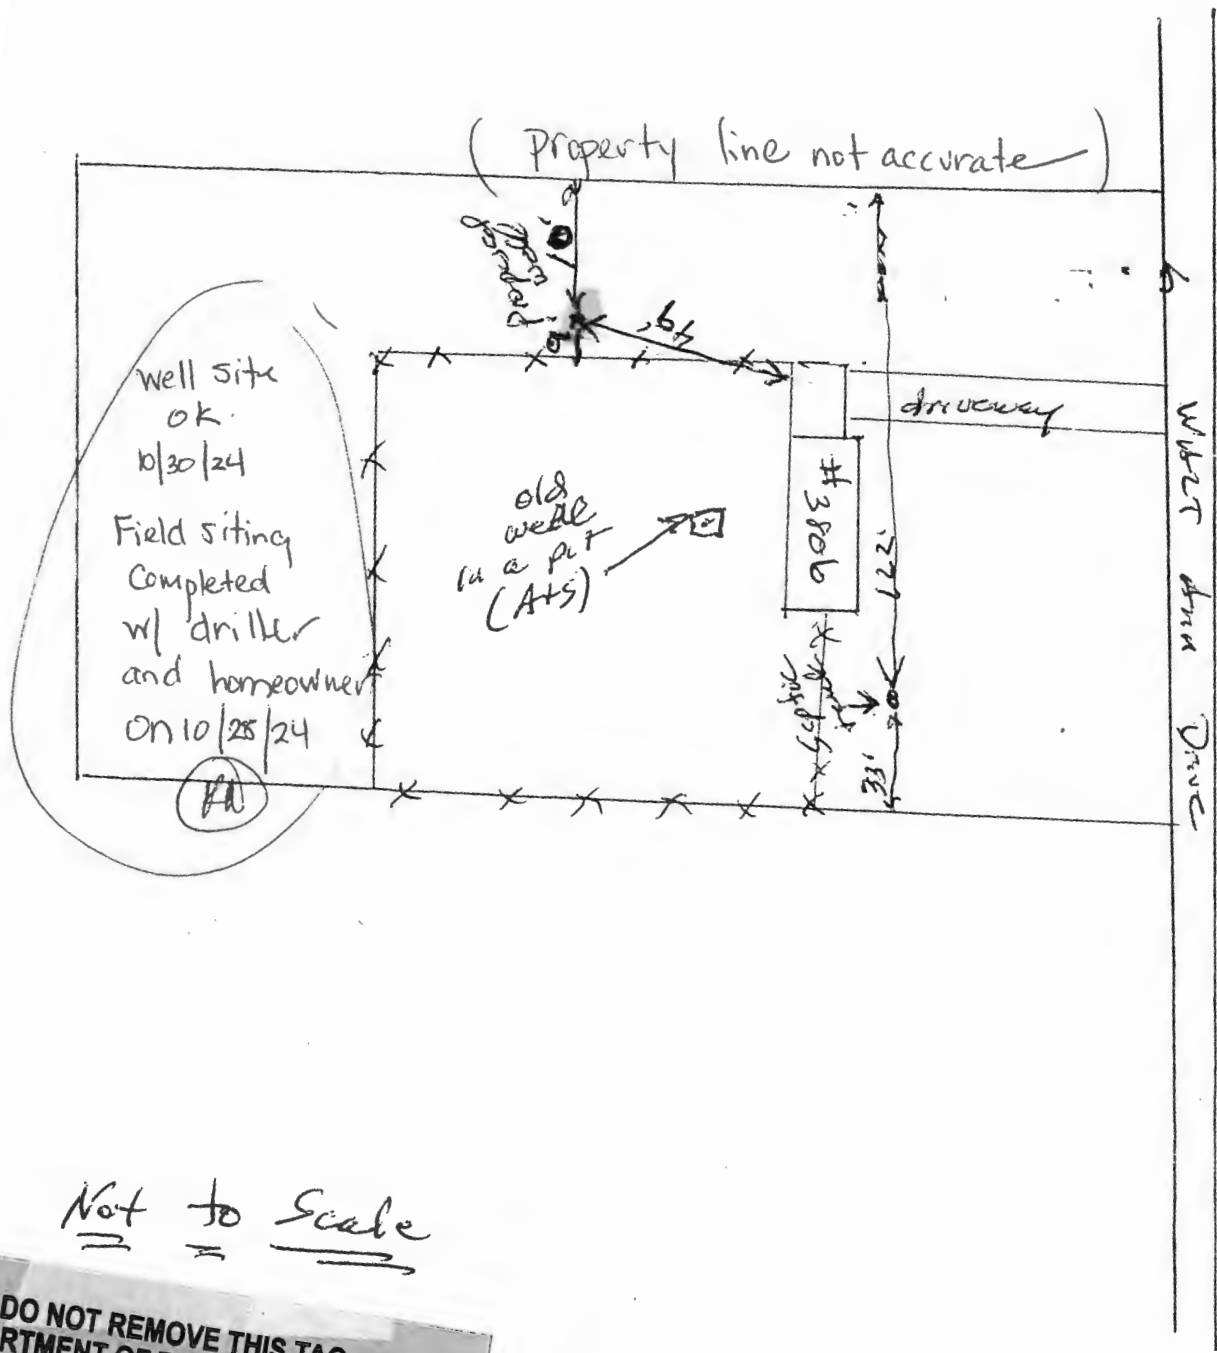 ( Property line not accurate )
10'
Proposed
49'
9'
driveway
Well site
OK.
10/30/24
Field siting
Completed
w/ driller
and homeowner
on 10/28/24
old
well
in a pit
(A+S)
#3806
122'
Septic
33'
Walt Ann Drive
Not to Scale
DO NOT REMOVE THIS TAG